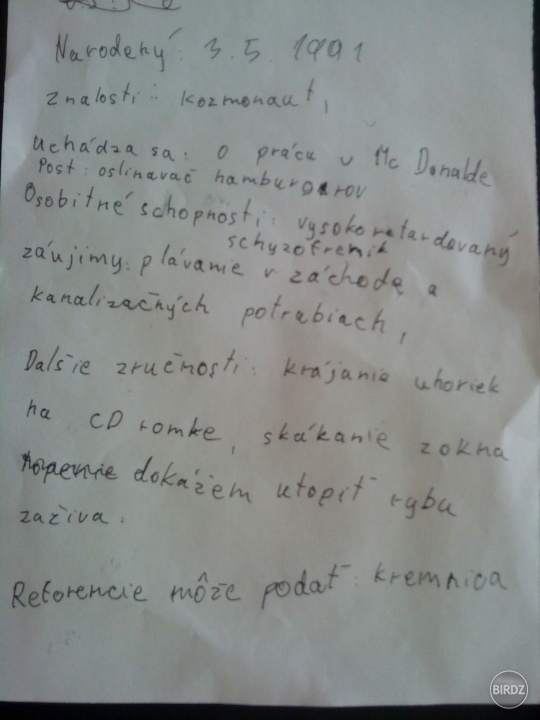 Narodený: 3.5. 1991
znalosti: kozmonaut,
Uchádza sa: o prácu v Mc Donalde
Post: oslinavač hamburgerov
Osobitné schopnosti: vysokoretardovaný
schyzofrenik
záujimy: plávanie v záchode a
kanalizačných potrubiach,
Dalšie zručnosti: krájanie uhoriek
na CD romke, skákanie z okna
dokážem utopiť rybu
zaživa.
Referencie môže podať: kremnica
BIRDZ